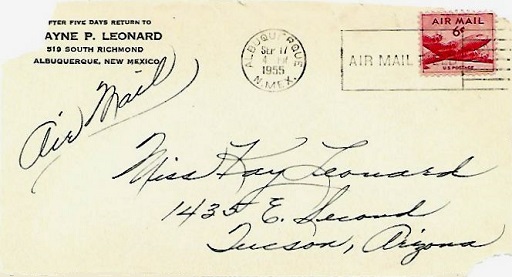 FTER FIVE DAYS RETURN TO
AYNE P. LEONARD
519 SOUTH RICHMOND
ALBUQUERQUE, NEW MEXICO
ALBUQUERQUE
SEP 17
4
1955
N.MEX.
AIR MAIL
AIR MAIL
6¢
U.S. POSTAGE
Air Mail
Miss Kay Leonard
1435 E. Second
Tucson, Arizona